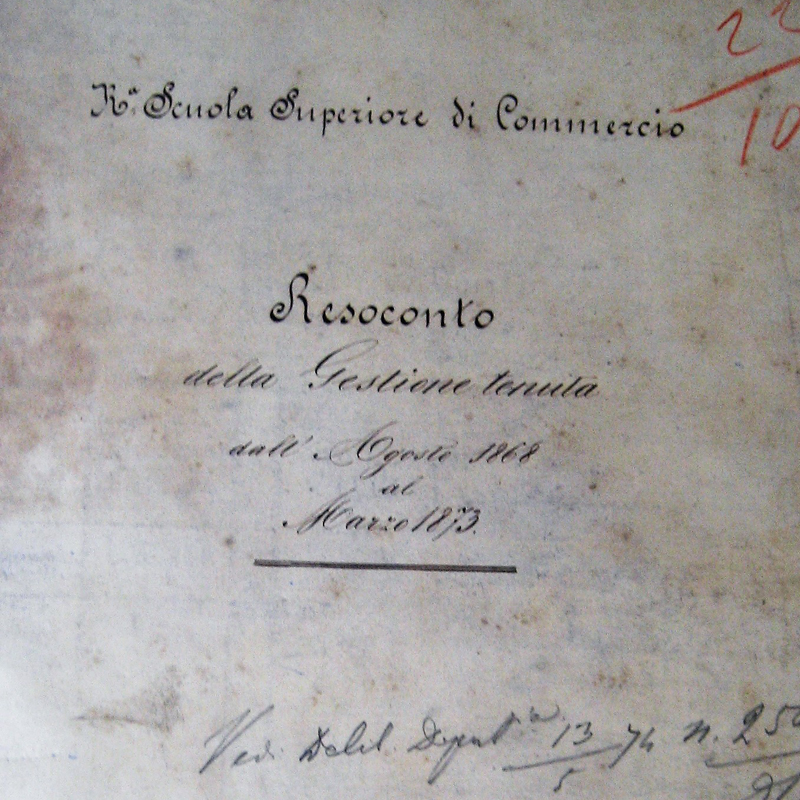 22
10
Rª Scuola Superiore di Commercio
Resoconto
della Gestione tenuta
dall' Agosto 1868
al
Marzo 1873.
Ved. Delib. Deput.ⁿᵉ 13/5 74 n. 250